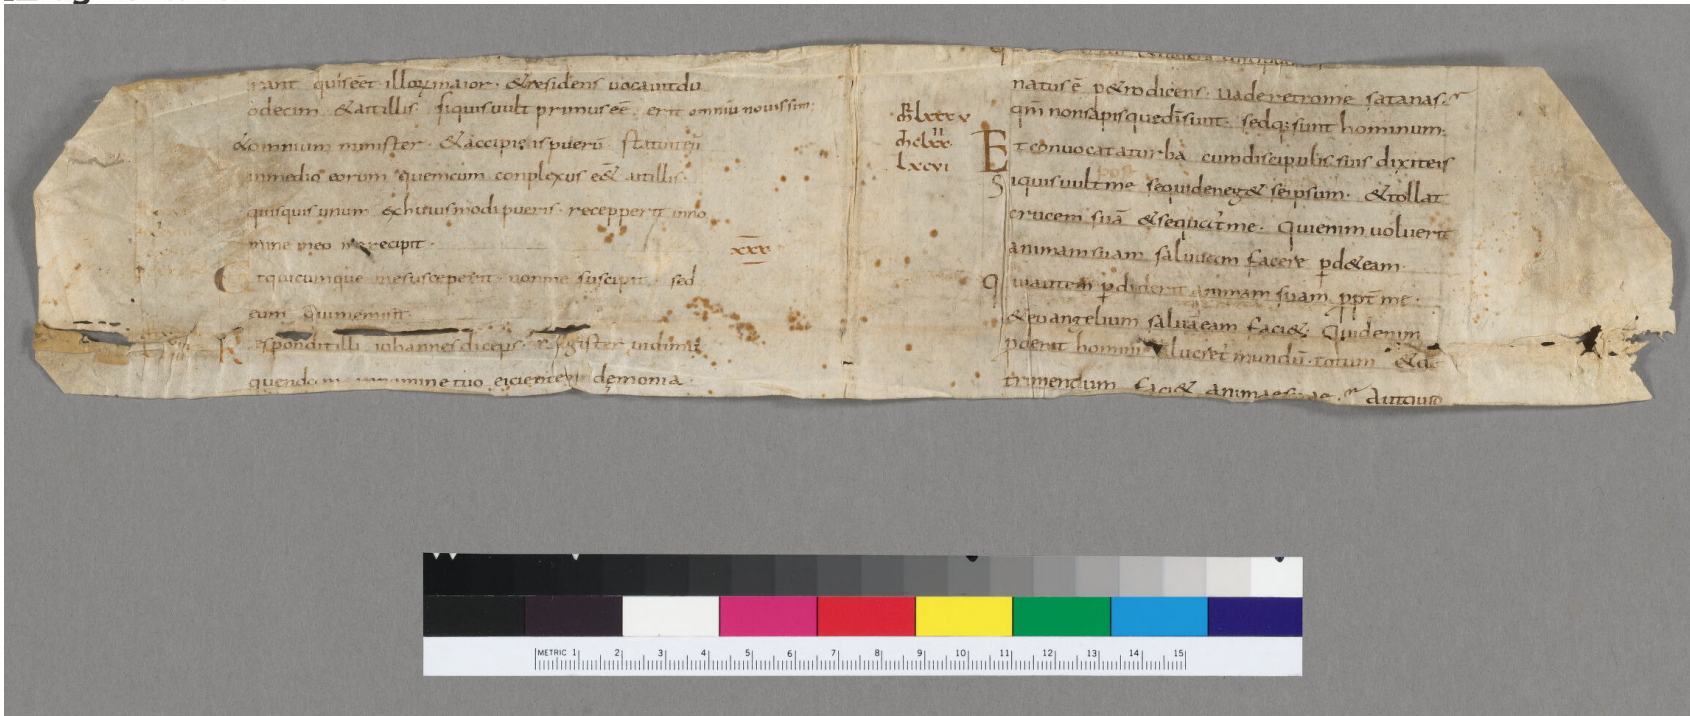 rant quiseēt illorum maior · & residens uocauit du
odecim · & ait illis · si quis uult primus eē · erit omniū nouissim;
& omnium minister · & accipiens puerū · statuit eū
in medio eorum quem cum conplexus eēt & ait illis ·
quisquis unum ex huiusmodi pueris · recepperit in no
mine meo me recipit ·
xxx
Et quicumque me susceperit · non me suscipit · sed
eum qui me misit
Respondit illi iohannes dicens · magister uidimus
quendam in nomine tuo eicientem demonia ·
natus ē p&ro dicens · uade retro me satanas ·
qm̄ non sapis que dī sunt · sed q; sunt hominum ;
lxxxv
lxcvi
Et conuocata turba cum discipulis suis dixit eis
Si quis uult me sequi deneg& se ipsum · & tollat
crucem suā & sequat me · Qui enim uoluerit
animam suam saluam facere pd& eam ·
Qui autem pdiderit animam suam ppt me ·
& euangelium saluā eam faci& · Quid enim
poderit homini si lucret mundū totum & de
trimentum faci& animae suae · Aut quid